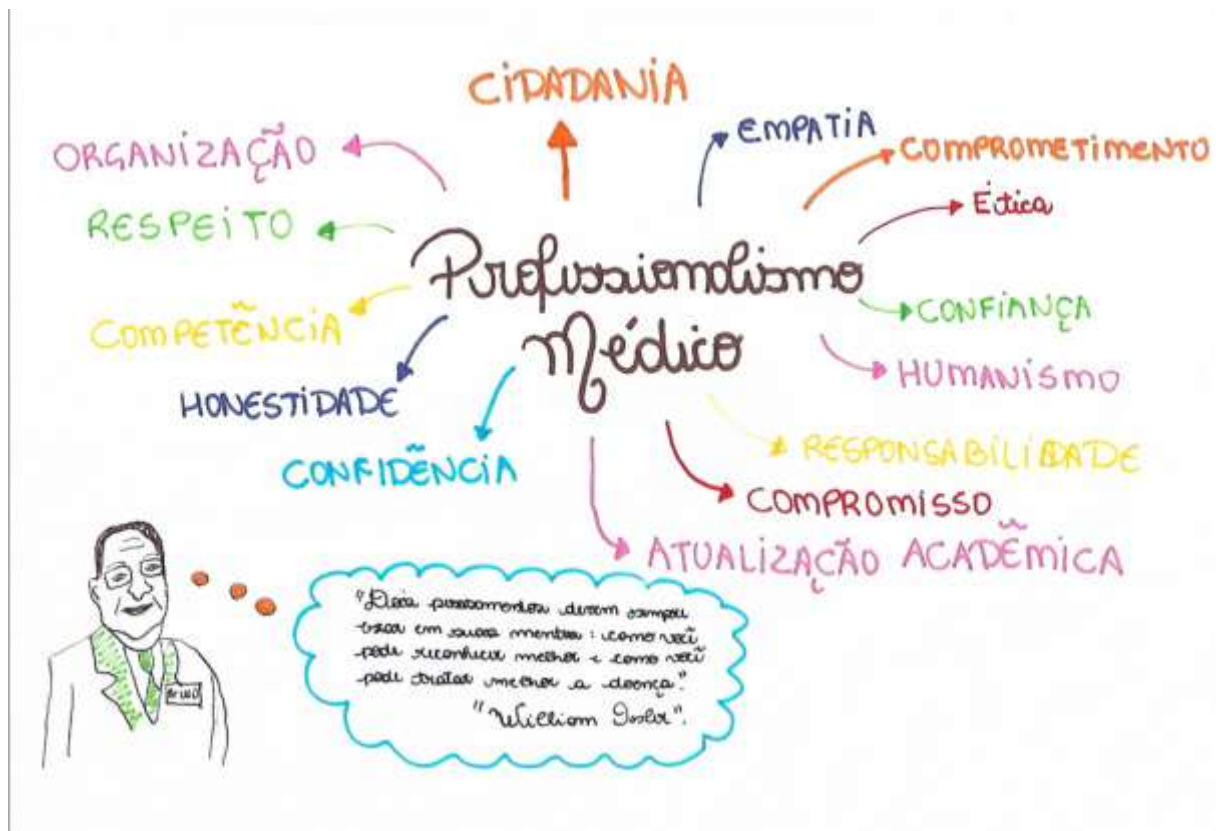 CIDADANIA
EMPATIA
ORGANIZAÇÃO
COMPROMETIMENTO
RESPEITO
Ética
Profissionalismo
Médico
COMPETÊNCIA
CONFIANÇA
HONESTIDADE
HUMANISMO
CONFIDÊNCIA
RESPONSABILIDADE
COMPROMISSO
ATUALIZAÇÃO ACADÊMICA
"Dois pensamentos devem sempre
em suas mentes: como você
pode reconhecer melhor e como você
pode tratar melhor a doença."
"William Osler".